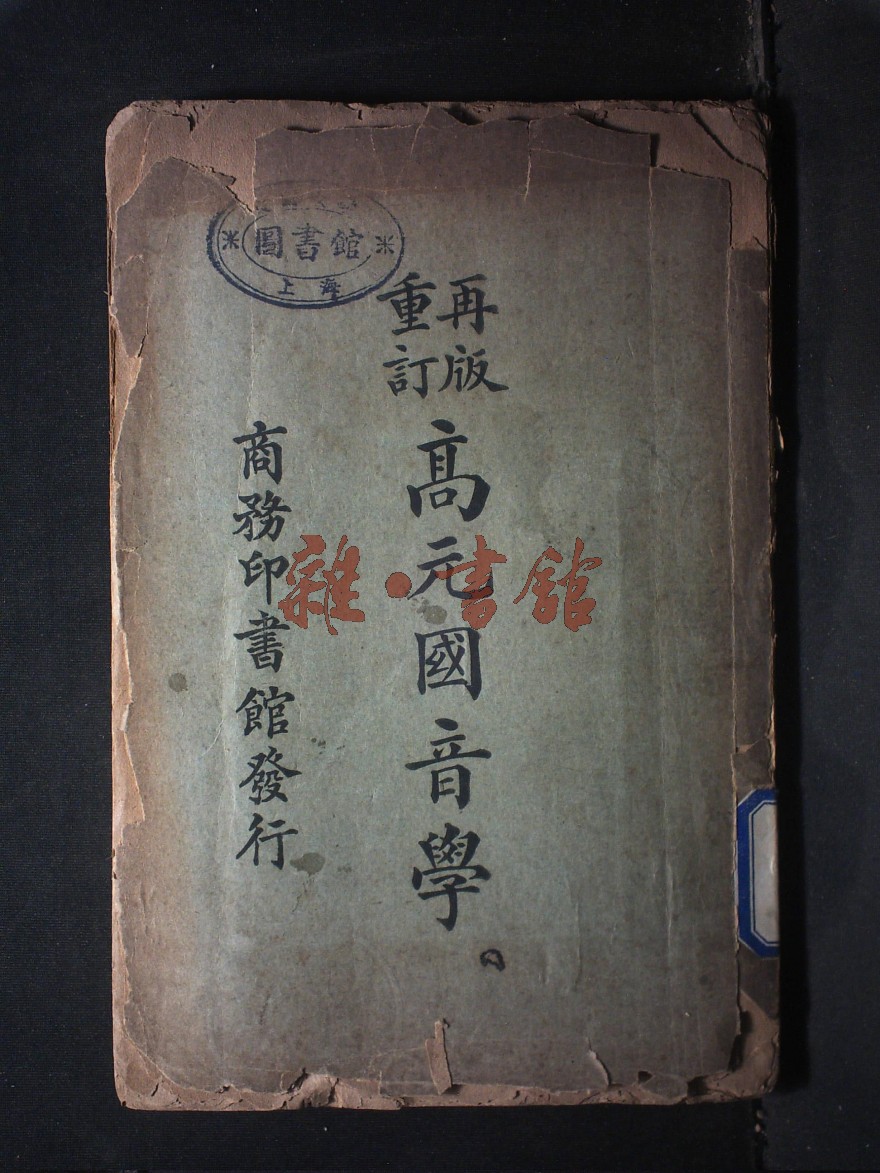 圖書館
上海
再版
重訂
高元國音學
商務印書館發行
雜·書館